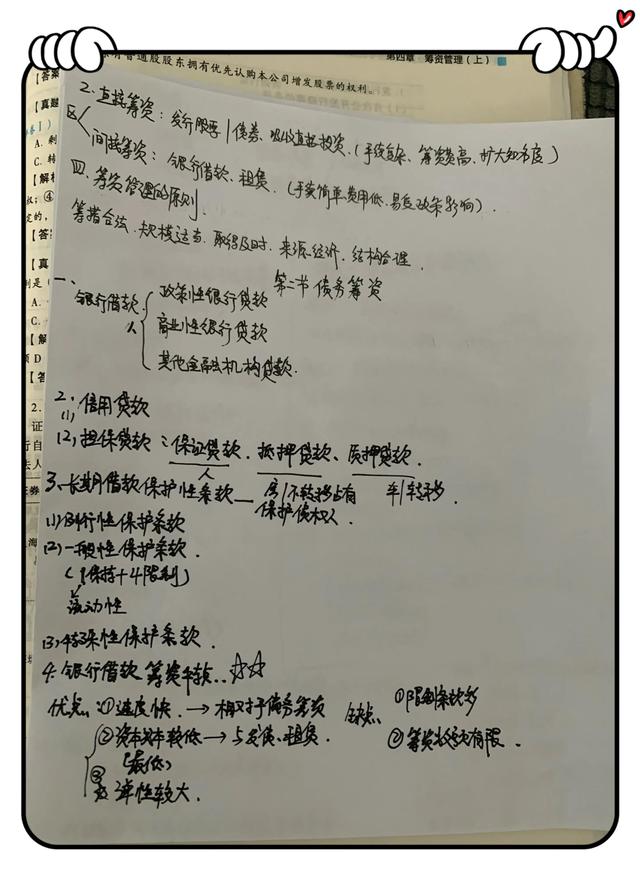 普通股股东拥有优先认购本公司增发股票的权利。
第四章 筹资管理（上）
【答案
【真题
A. 剩
C. 转
【解析
权；④
定的，
【答
【真
则是（
A.
C.
【解
项 D
【答
2.
证
行自
去人
2.直接筹资：发行股票/债券、吸收直接投资.(手续复杂、筹资费高、扩大知名度)
区
间接筹资：银行借款、租赁.(手续简单.费用低.易受政策影响).
四.筹资管理的原则.
筹措合法.规模适当.取得及时.来源经济.结构合理.
第二节 债务筹资
一、
银行借款.
人
政策性银行贷款
商业性银行贷款
其他金融机构贷款.
2、
(1)信用贷款
(2)担保贷款：保证贷款.抵押贷款、质押贷款.
人 房/不转移占有 车/转移.
3、长期借款保护性条款— 保护债权人.
(1)例行性保护条款
(2)一般性保护条款.
(1保持+4限制)
流动性
(3)特殊性保护条款.
4.银行借款筹资特点..☆☆
优点：①速度快.→相对于债务筹资
②资本成本较低→与发债、租赁.
(最低)
③
弹性较大.
缺点
①限制条款多
②筹资数额有限.